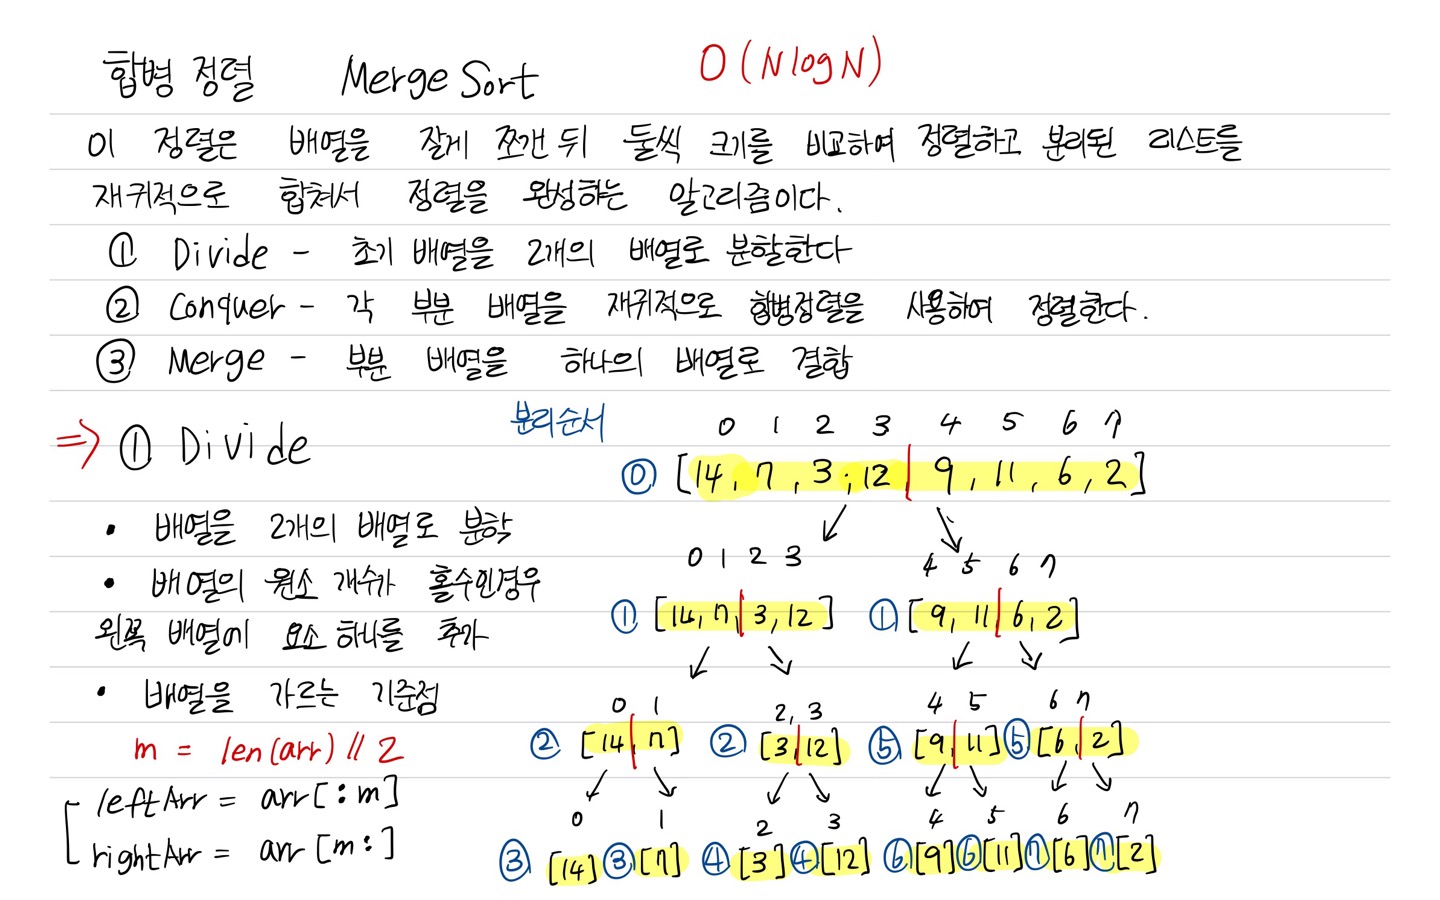 합병 정렬 Merge Sort O(NlogN)
이 정렬은 배열을 잘게 쪼갠 뒤 둘씩 크기를 비교하여 정렬하고 분리된 리스트를
재귀적으로 합쳐서 정렬을 완성하는 알고리즘이다.
① Divide - 초기 배열을 2개의 배열로 분할한다
② Conquer - 각 부분 배열을 재귀적으로 합병정렬을 사용하여 정렬한다.
③ Merge - 부분 배열을 하나의 배열로 결합
⇒ ① Divide
• 배열을 2개의 배열로 분학
• 배열의 원소 개수가 홀수인경우
왼쪽 배열에 요소 하나를 추가
• 배열을 가르는 기준점
m = len(arr) // 2
leftArr = arr[:m]
rightArr = arr[m:]
분리순서
0 1 2 3 4 5 6 7
⓪ [14, 7, 3, 12, 9, 11, 6, 2]
0 1 2 3 4 5 6 7
① [14, 7, 3, 12] ① [9, 11, 6, 2]
0 1 2, 3 4 5 6 7
② [14, 7] ② [3, 12] ⑤ [9, 11] ⑤ [6, 2]
0 1 2 3 4 5 6 7
③ [14] ③ [7] ④ [3] ④ [12] ⑥ [9] ⑥ [11] ⑦ [6] ⑦ [2]